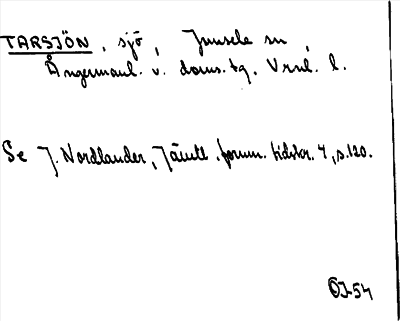 TARSJÖN, sjö, Junsele sn,
Ångermanl. v. doms. tg, Vrnl. l.
Se J. Nordlander, Jämtl. fornm. tidskr. 4, s. 120.
ÖJ-54